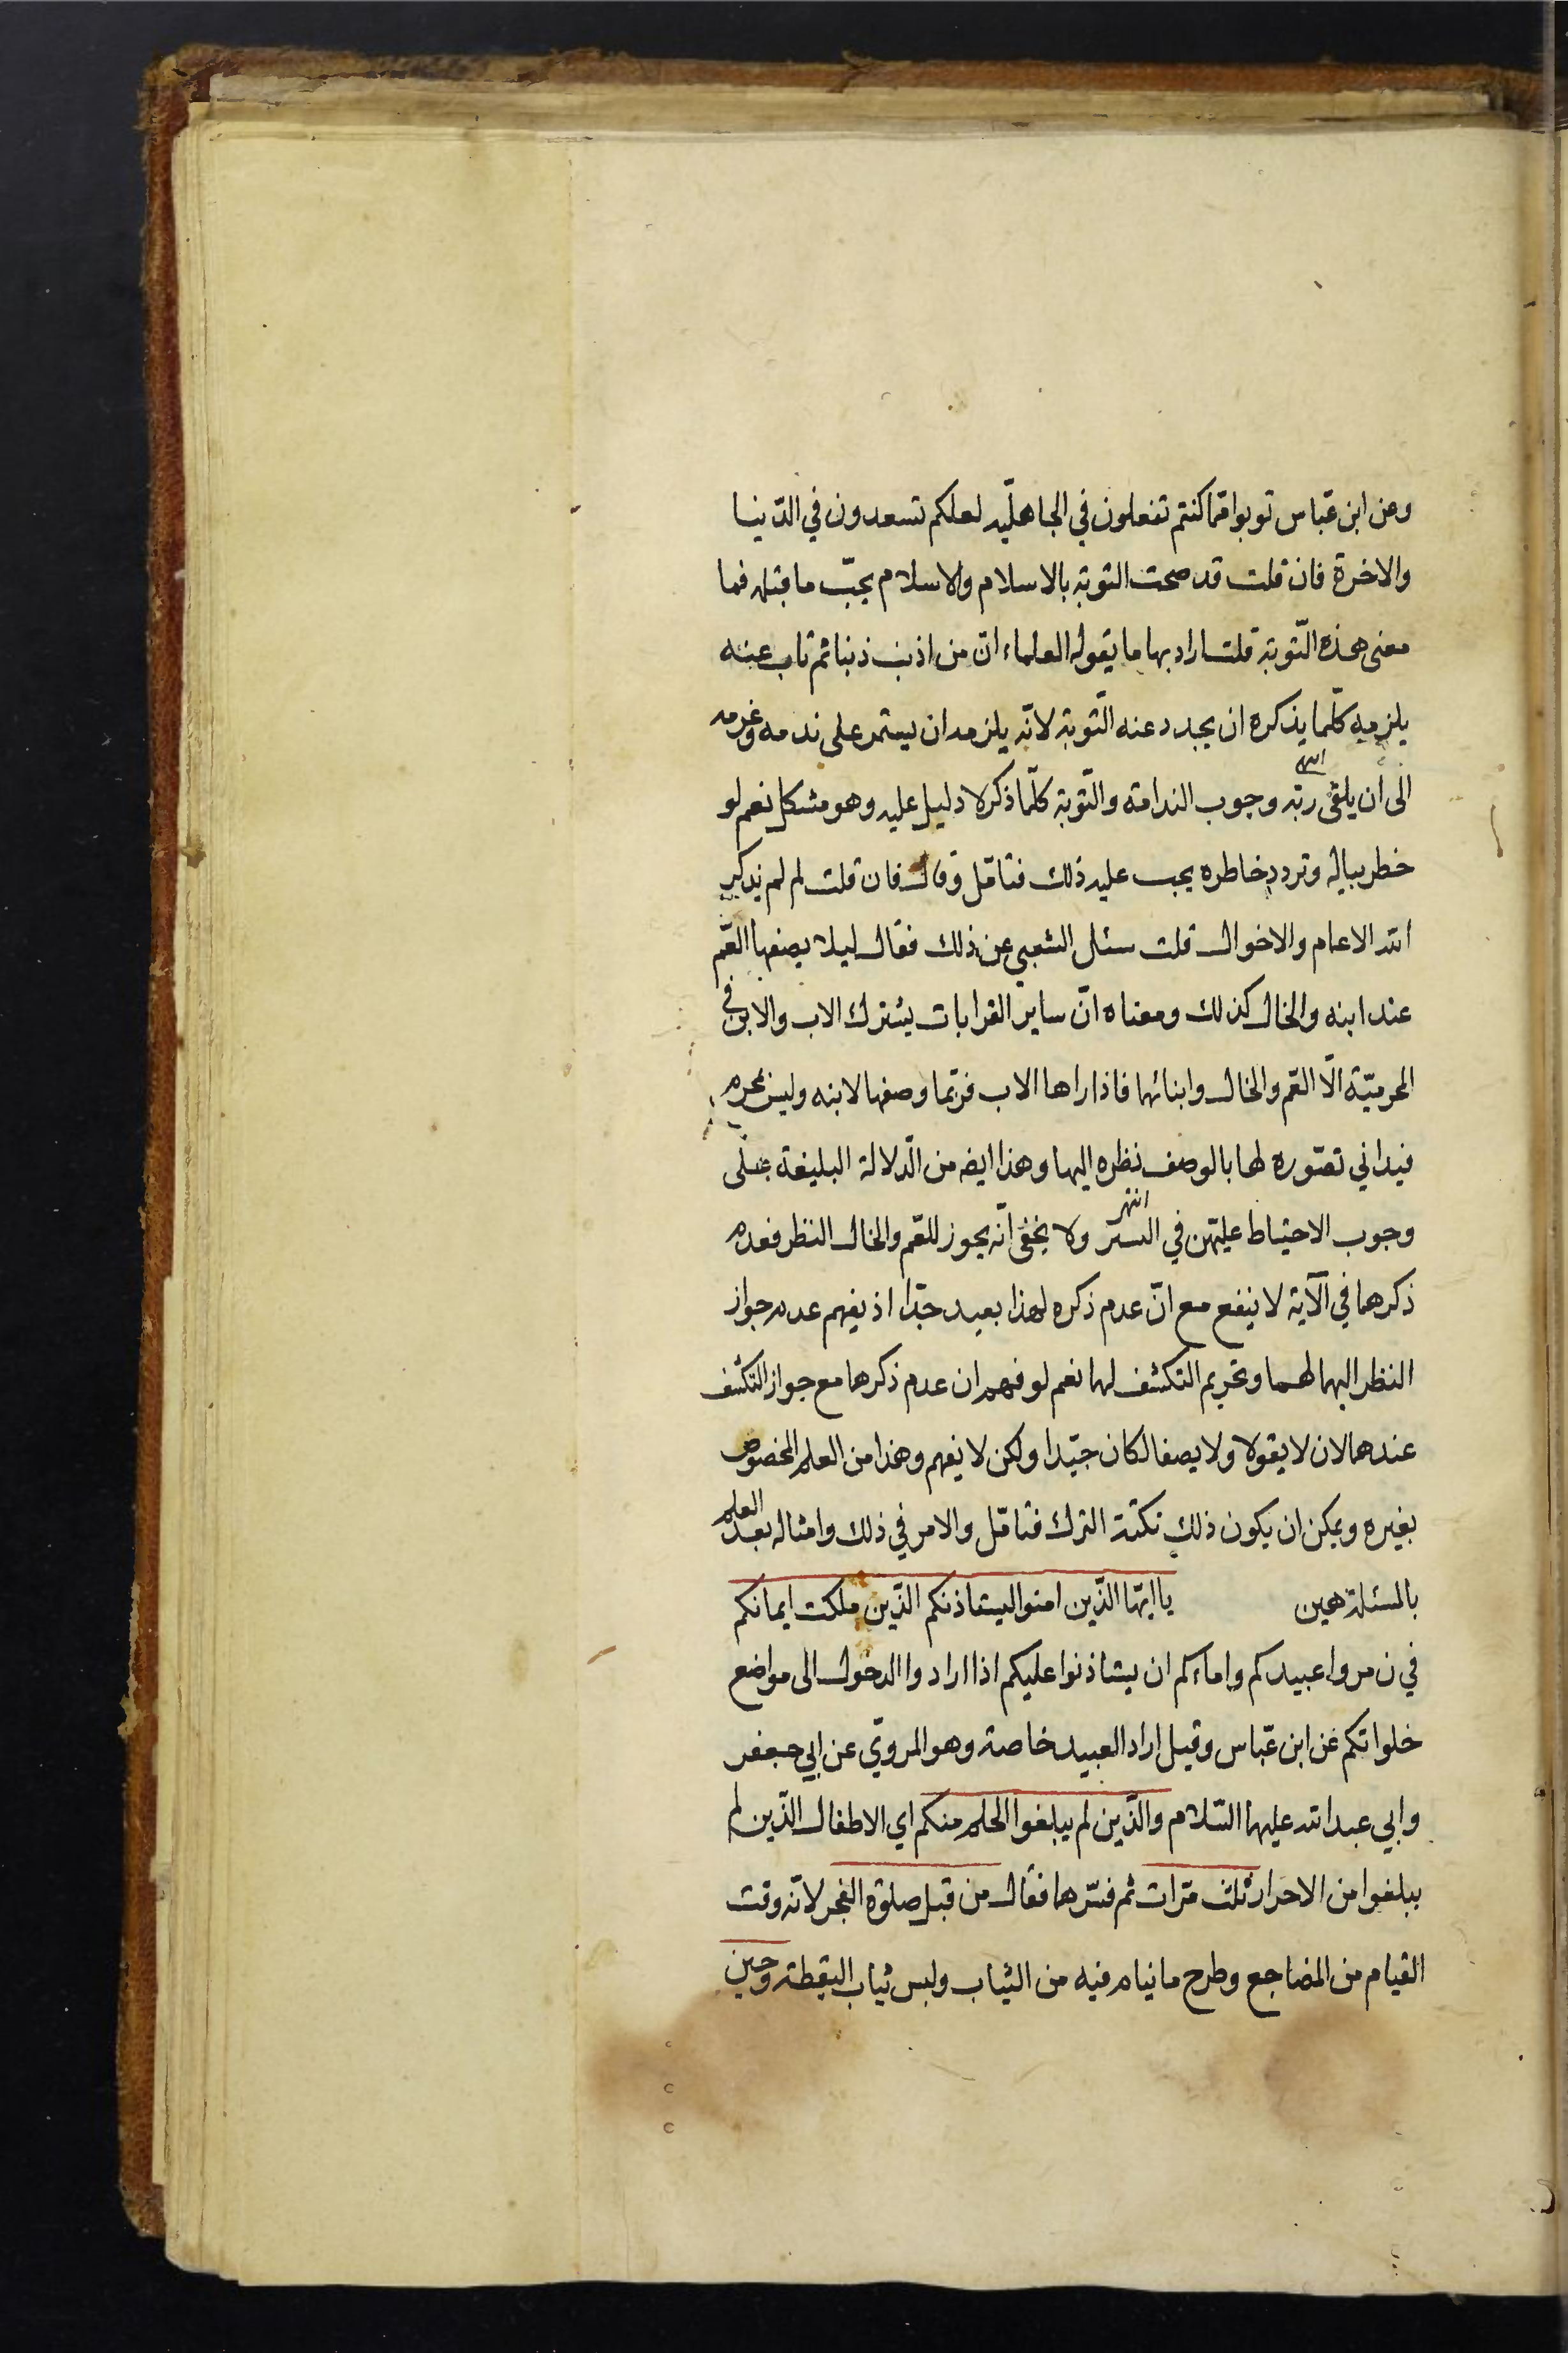 وعن ابن عبّاس توبوا ممّا كنتم تفعلون في الجاهليّه لعلكم تسعدون في الدّنيا
والاخرة فان قلت قد صحت التوبة بالاسلام والاسلام يجبّ ما قبله فما
معنى هذه التّوبة قلت اراد بها ما يقوله العلماء انّ من اذنب ذنبا ثم تاب عنه
يلزمه كلّما يذكره ان يجدد عنه التّوبة لانّه يلزمه ان يستمر على ندمه وعزمه
الى ان يلقى ربّه انتهى وجوب الندامة والتّوبة كلّما ذكر لا دليل عليه وهو مشكل نعم لو
خطر بباله وتردد خاطره يجب عليه ذلك فتامّل وقال فان قلت لم لم يذكر
الله الاعمام والاخوال قلت سئل الشعبي عن ذلك فقال ليلا يصفها العّم
عند ابنه والخال كذلك ومعناه انّ ساير القرابات يشترك الاب والابن في
المحرميّة الّا العّم والخال وابنائهما فاذا راها الاب فربّما وصفها لابنه وليس بمحرم
فيداني تصّوره لها بالوصف نظره اليها وهذا ايضه من الّدلالة البليغة على
وجوب الاحتياط عليّهن في السّتر انتهى ولا يخفى انّه يجوز للعّم والخال النظر فعدم
ذكرهما في الآية لا ينفع مع انّ عدم ذكره لهذا بعيد جدّا اذ يفهم عدم جواز
النظر اليها لهما وتحريم التكشف لهما نعم لو فهم ان عدم ذكرهما مع جواز التكشف
عندهما لان لا يقولا ولا يصفا لكان جيّدا ولكن لا يفهم وهذا من العلم المخصوص
بغيره ويمكن ان يكون ذلك نكتة الترك فتامّل والامر في ذلك وامثاله بعد العلم
بالمسئلة هين يا ايّها الّذين امنوا ليستاذنكم الّذين ملكت ايمانكم
في ن مروا عبيدكم واماءكم ان يستاذنوا عليكم اذا ارادوا الدخول الى مواضع
خلواتكم عن ابن عبّاس وقيل اراد العبيد خاصة وهو المروّي عن ابي جعفر
وابي عبد الله عليهما السّلام والّذين لم يبلغوا الحلم منكم اي الاطفال الّذين لم
يبلغوا من الاحرار ثلث مّرات ثم فسّرها فقال من قبل صلوة الفجر لانّه وقت
القيام من المضاجع وطرح ما ينام فيه من الثياب ولبس ثياب اليقظة وحين